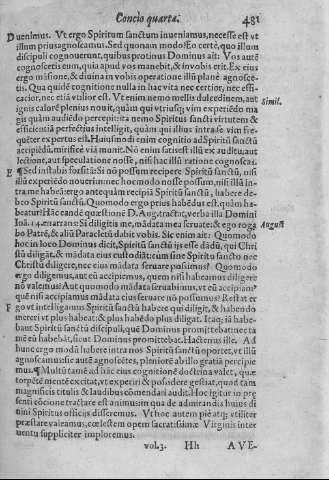 Concio quarta. 481
Duenimus. Vt ergo Spiritum sanctum inueniamus, necesse est vt
illum prius agnoscamus. Sed quonam modo? Eo certè, quo illum
discipuli cognouerunt, quibus protinus Dominus ait: Vos autē
cognoscetis eum, quia apud vos manebit, & in vobis erit. Ex eius
ergo māsione, & diuina in vobis operatione illū planè agnosce-
tis. Qua quidē cognitione nulla in hac vita nec certior, nec effi-
cacior, nec etiā vtilior est. Vt enim nemo mellis dulcedinem, aut
ignis calorē pleniùs nouit, quàm qui vtriusq; vim experiēdo ma
simil.
gis quàm audiēdo percepit: ita nemo Spiritus sancti virtutem &
efficientiā perfectiùs intelligit, quàm qui illius intra se vim fre-
quēter expertus est. Huiusmodi enim cognitio ad Spiritū sanctū
accipiēdū, mirificè via munit. Nō enim satis est illū ex auditu, aut
lectione, aut speculatione nosse, nisi hac illū ratione cognoscas.
E ¶ Sed instabis forsitā: Si nō possum recipere Spiritū sanctū, nisi
illū experiēdo nouerim: nec hoc modo nosse possum, nisi illū in-
tra me habeā: ergo antequàm recipiā Spiritū sanctū, habere de-
beo Spiritū sanctū. Quomodo ergo prius habēdus est, quàm ha-
beatur? Hāc eandē quæstionē D. Aug. tractat, verba illa Domini
Ioā. 14. enarrans: Si diligitis me, mādata mea seruate: & ego roga
August
bo Patrē, & aliū Paracletū dabit vobis. Sic enim ait: Quomodo
hoc in loco Dominus dicit, Spiritū sanctū ijs esse dādū, qui Chri
stū diligāt, & mādata eius custodiāt: cum sine Spiritu sancto nec
Christū diligere, nec eius mādata seruare possimus? Quomodo
ergo diligemus, aut eū accipiemus, quem nisi habeamus diligere
nō valemus? Aut quomodo mādata seruabimus, vt eū accipiam⁹
quē nisi accipiamus mādata eius seruare nō possumus? Restat er
F go vt intelligamus Spiritū sanctū habere qui diligit, & habendo
mereri vt plus habeat: & plus habēdo plus diligat. Itaq; iā habe-
bant Spiritū sanctū discipuli, quē Dominus promittebat: nec ta
mē eū habebāt, sicut Dominus promittebat. Hactenus ille. Ad
hunc ergo modū habere intra nos Spiritū sanctū oportet, vt illū
agnoscamus: sic autē agnoscētes, pleniorē ab illo gratiā percipie
mus. ¶ Multū tamē ad hāc eius cognitionē doctrina valet, quæ
torpētē mentē excitat, vt experiri & possidere gestiat, quod tam
magnificis titulis & laudibus cōmendari audit. Hoc igitur in præ
senti cōcione tractare est animus: in qua de admirandis huius di
uini Spiritus officijs disseremus. Vt hoc autem piè atq; vtiliter
præstare valeamus, cœlestem opem sacratissimæ Virginis inter
uentu suppliciter imploremus.
vol. 3. Hh AVE-